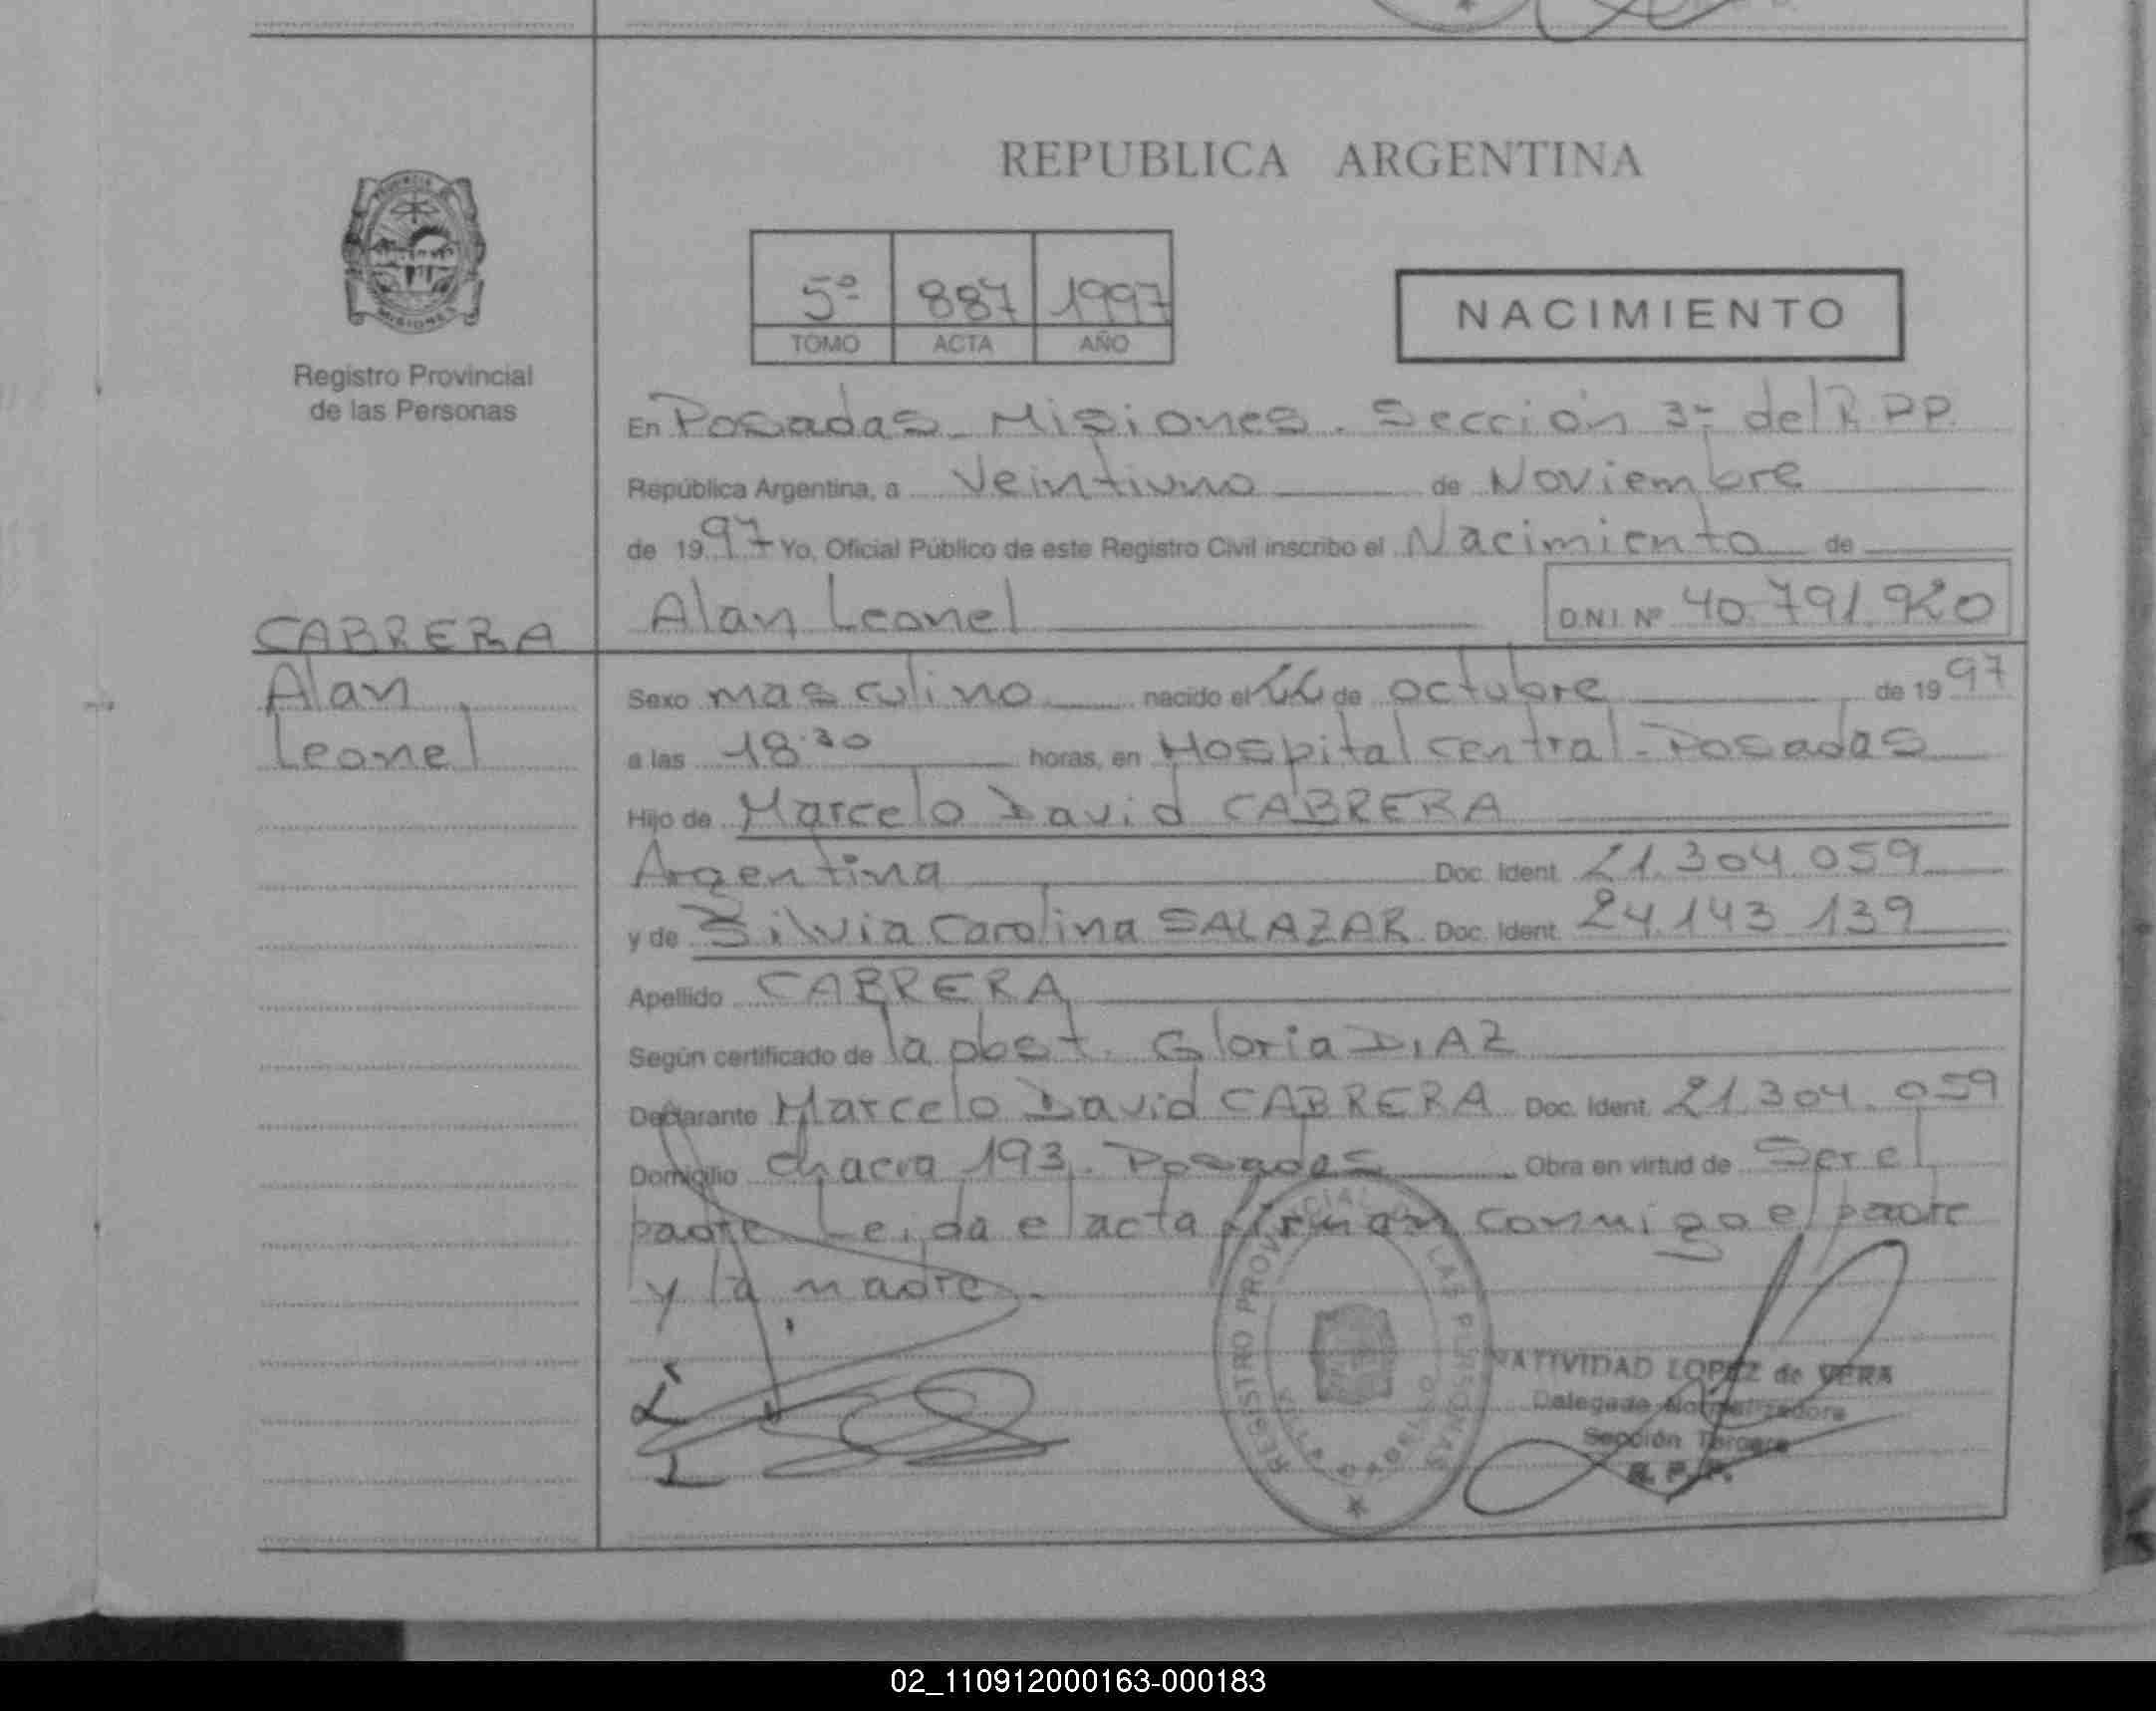 REPUBLICA ARGENTINA
5º 887 1997
TOMO ACTA AÑO
NACIMIENTO
PROVINCIA DE
MISIONES
Registro Provincial
de las Personas
En Posadas - Misiones. Sección 3º del R.P.P.
República Argentina, a Veintiuno de Noviembre
de 1997 Yo, Oficial Público de este Registro Civil inscribo el Nacimiento de
Alan Leonel D.N.I. Nº 40.791.920
CABRERA
Alan
Leonel
Sexo masculino nacido el 22 de octubre de 1997
a las 18.30 horas, en Hospital central - Posadas
Hijo de Marcelo David CABRERA
Argentina Doc. Ident. 21.304.059
y de Silvia Carolina SALAZAR Doc. Ident. 24.143.139
Apellido CABRERA
Según certificado de la obst. Gloria DIAZ
Declarante Marcelo David CABRERA Doc. Ident. 21.304.059
Domicilio chacra 193. Posadas Obra en virtud de Ser el
padre Leida el acta firman conmigo el padre
y la madre.
REGISTRO PROVINCIAL DE LAS PERSONAS
NATIVIDAD LOPEZ de VERA
Delegada Normalizadora
Sección Tercera
R. P. P.
02_110912000163-000183